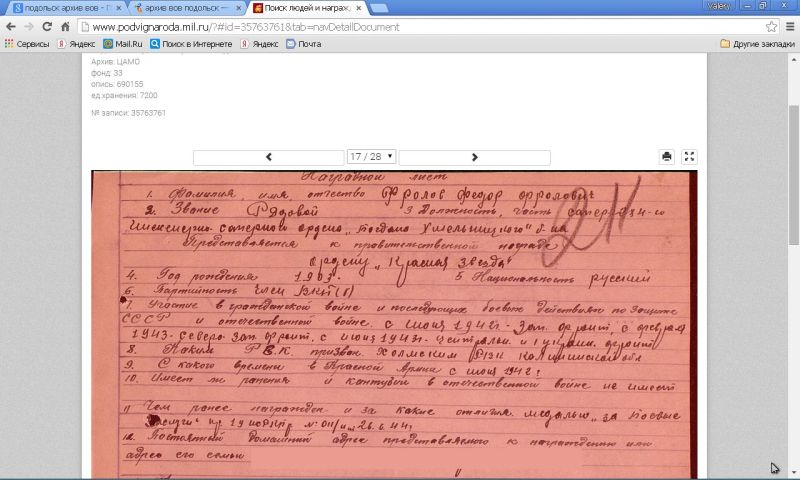 подольск архив вов - П
архив вов подольск —
Поиск людей и награжд
Valeriy
www.podvignaroda.mil.ru/?#id=35763761&tab=navDetailDocument
Сервисы
Яндекс
Mail.Ru
Поиск в Интернете
Яндекс
Почта
Другие закладки
Архив: ЦАМО
фонд: 33
опись: 690155
ед.хранения: 7200
№ записи: 35763761
17 / 28
Наградной лист
1. Фамилия, имя, отчество Фролов Федор Фролович
2. Звание Рядовой 3 Должность, часть сапер
Инженерно-саперного ордена „Богдана Хмельницкого" б-на
Представляется к правительственной награде
Ордену „Красная Звезда"
4. Год рождения 1903. 5 Национальность русский
6. Партийность член ВКП(б)
7. Участие в гражданской войне и последующих боевых действиях по защите
СССР и отечественной войне. с июня 1942г. Зап. фронт, с февраля
1943- северо-зап. фронт, с июня 1943г. централь. и 1 украин. фронт
8. Каким Р.В.К. призван. Холмским РВК Калининской обл
9. С какого времени в Красной Армии с июня 1942г
10. Имеет ли ранения и контузии в отечественной войне не имеет
11 Чем ранее награжден и за какие отличия медалью „за боевые
заслуги" пр. 26.6.44г
12. Постоянный домашний адрес представляемого к награждению или
адрес его семьи